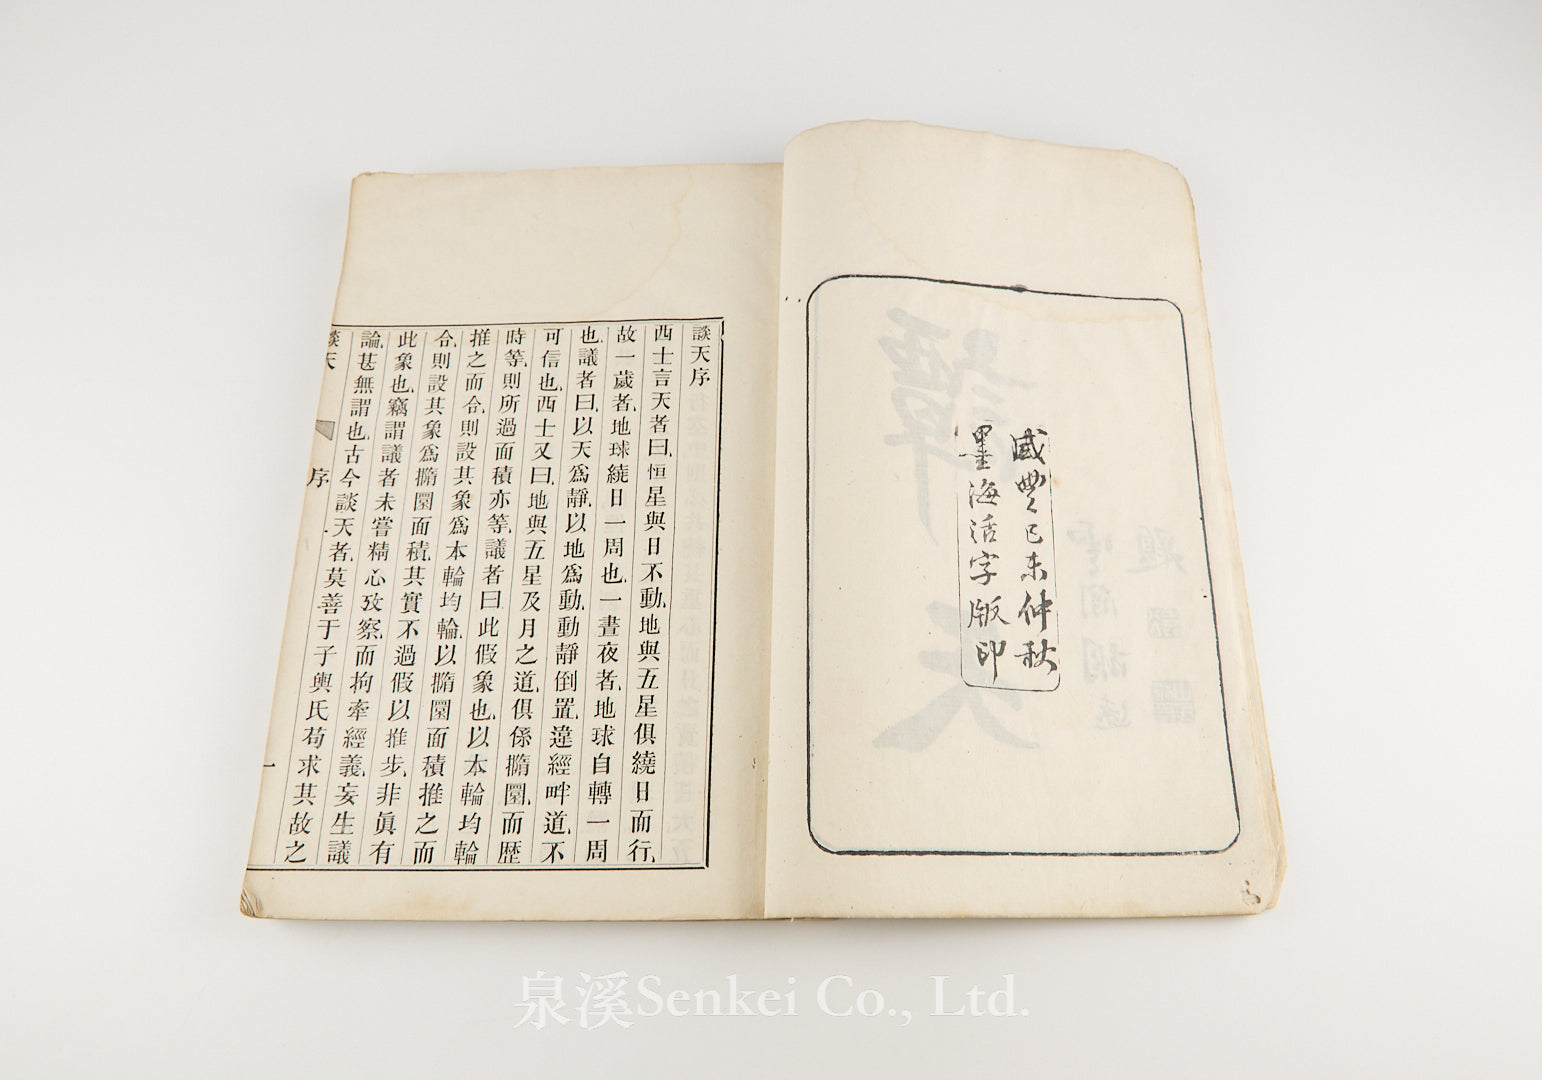 咸豐己未仲秋
墨海活字版印
談天序
西士言天者曰恒星與日不動地與五星俱繞日而行
故一歲者地球繞日一周也一晝夜者地球自轉一周
也議者曰以天爲靜以地爲動動靜倒置違經畔道不
可信也西士又曰地與五星及月之道俱係撱圜而歷
時等則所過面積亦等議者曰此假象也以本輪均輪
推之而合則設其象爲本輪均輪以撱圜面積推之而
合則設其象爲撱圜面積其實不過假以推步非眞有
此象也竊謂議者未嘗精心攷察而拘牽經義妄生議
論甚無謂也古今談天者莫善于子輿氏苟求其故之
談天
序
一
泉溪Senkei Co., Ltd.